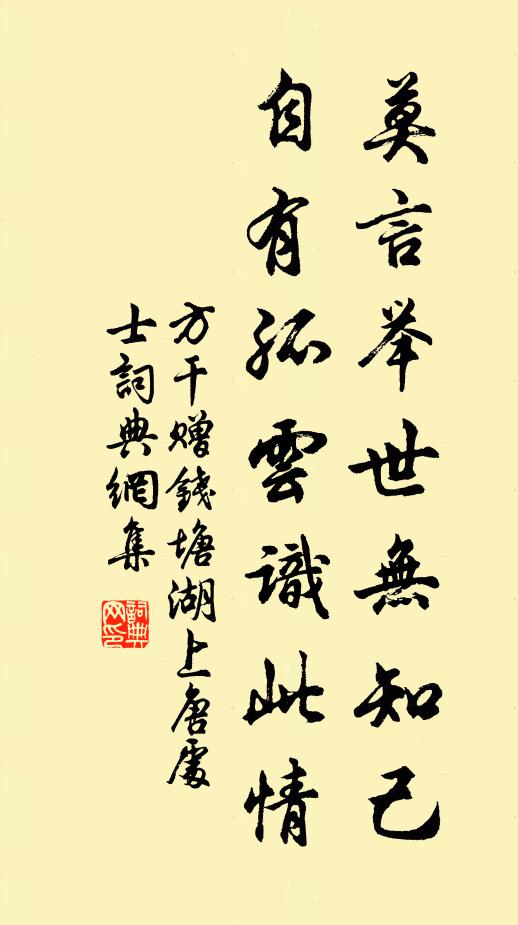 莫言举世無知己
自有孤雲識此情
方干贈錢塘湖上唐處
士詞典網集
詞典
网印